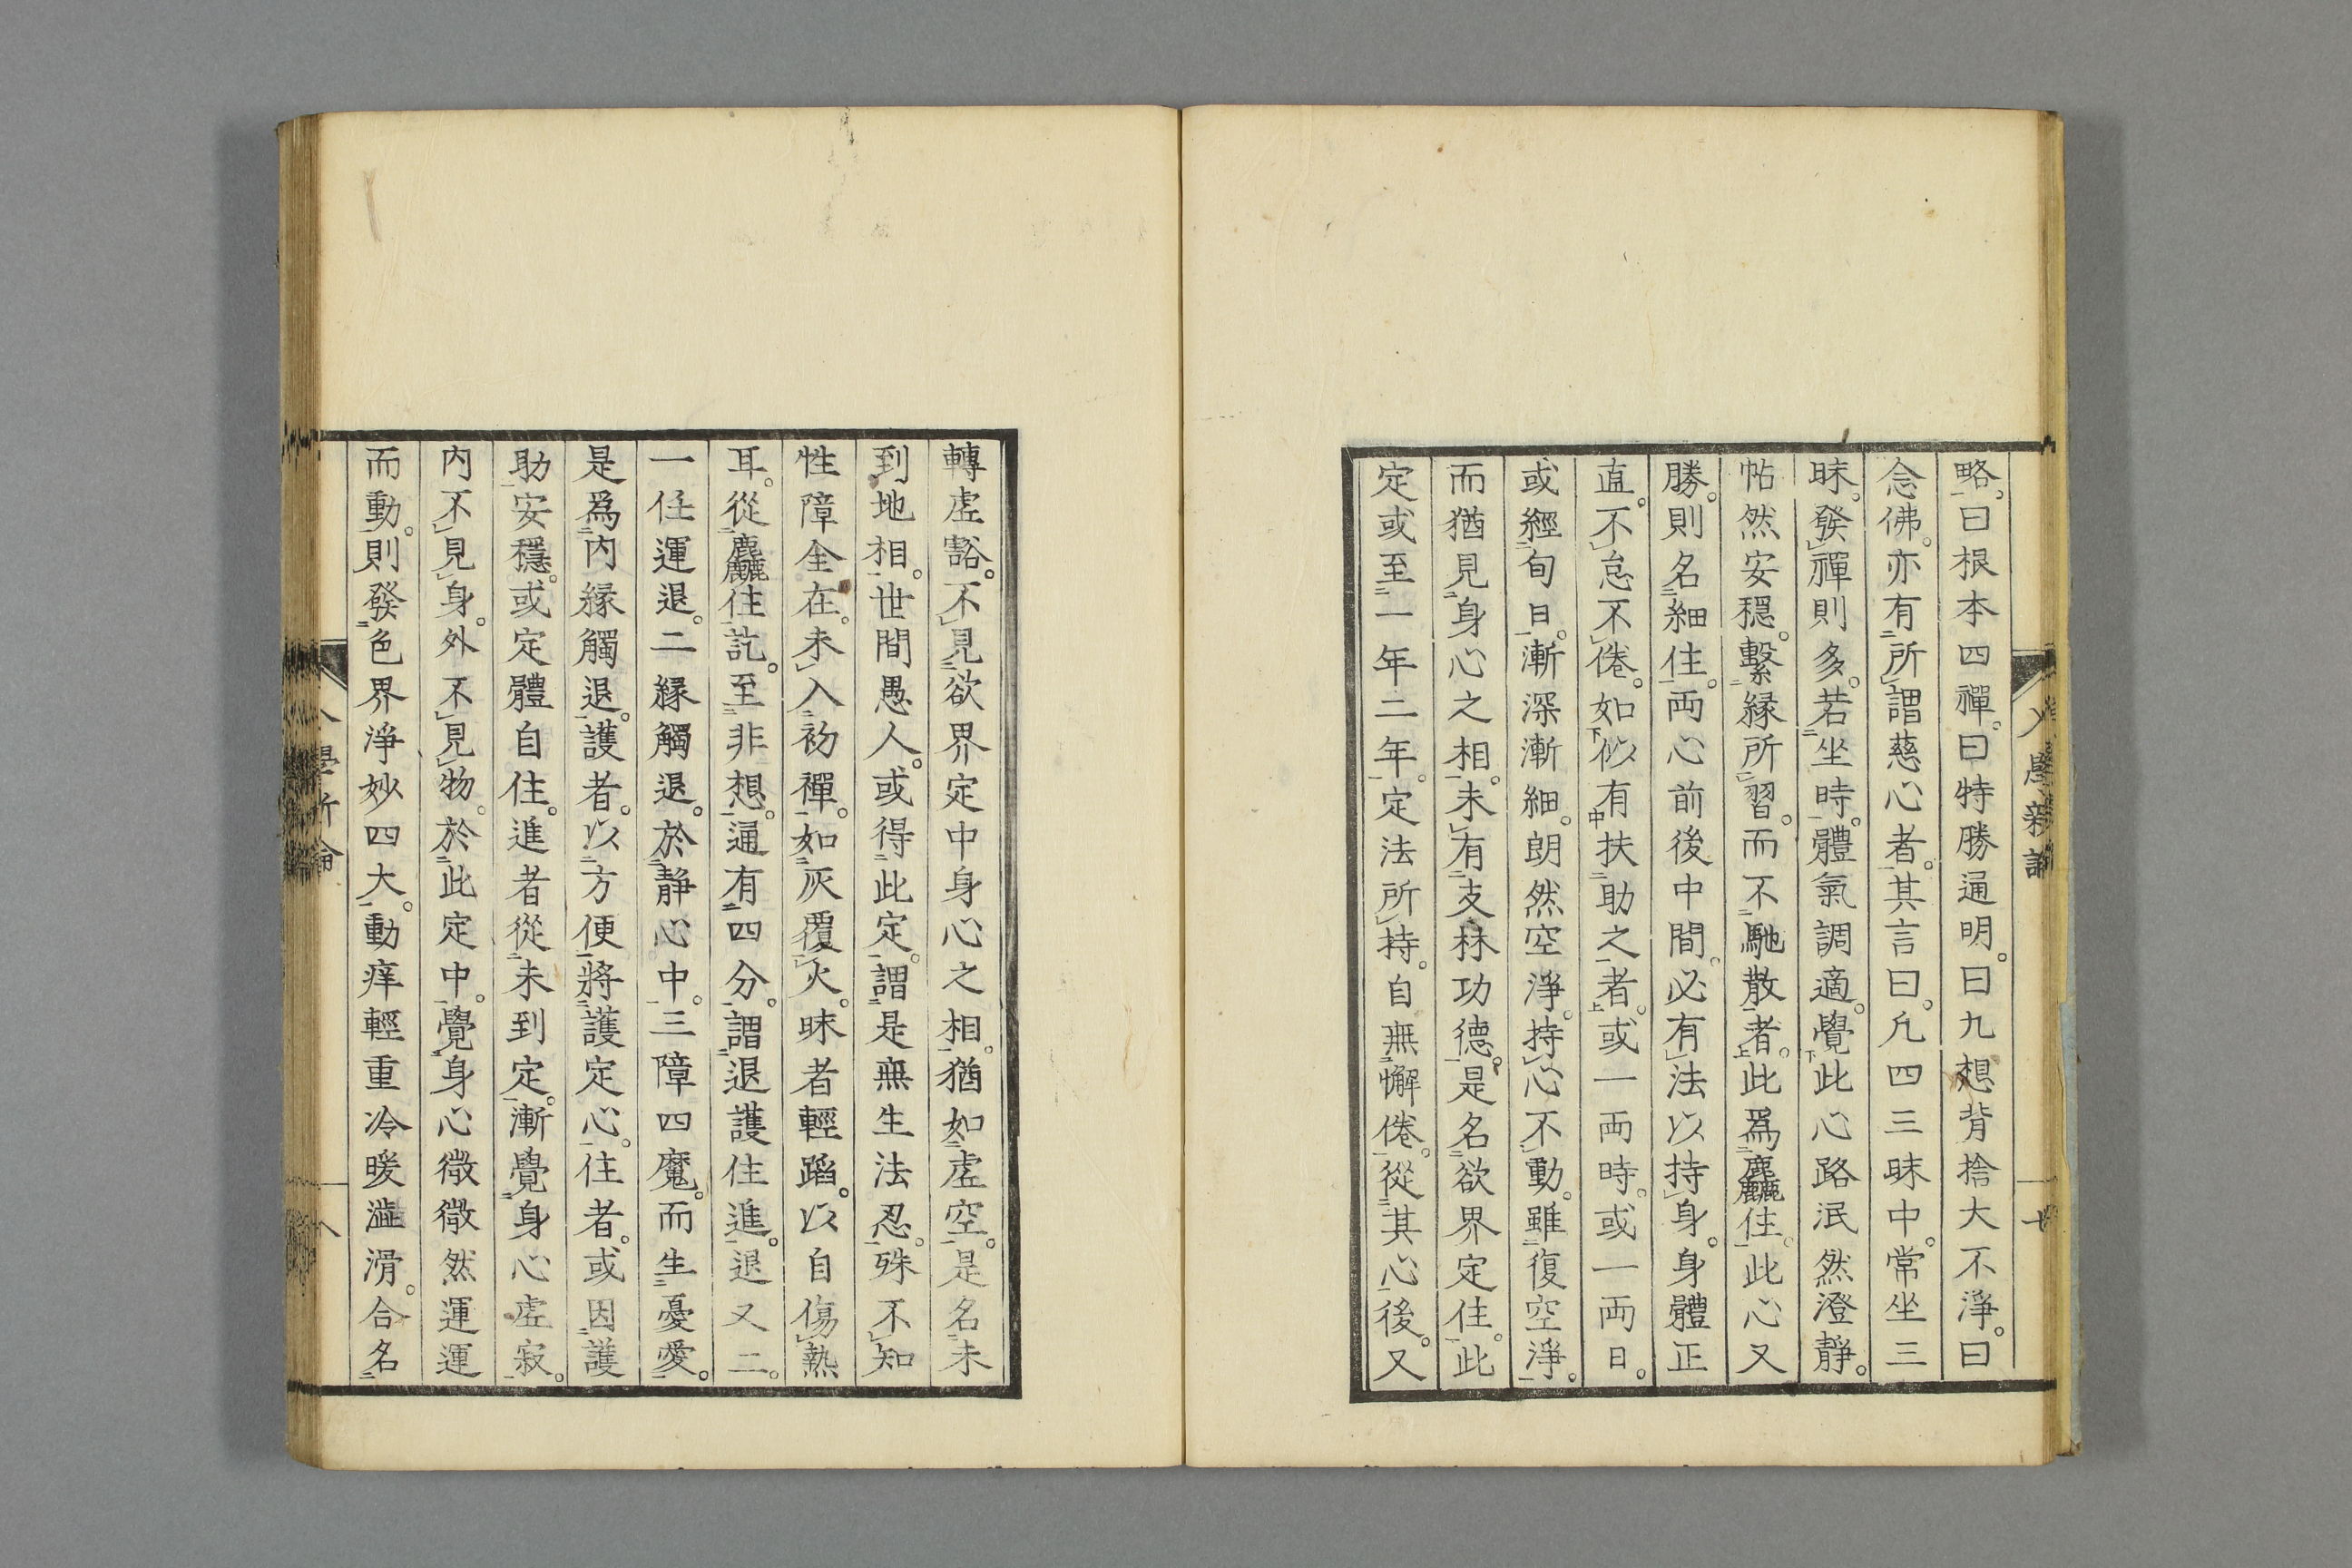 略曰根本四禪。曰特勝通明。曰九想背捨大不淨。曰
念佛。亦有所謂慈心者。其言曰。凡四三昧中。常坐三
昧。發禪則多。若坐時。體氣調適。覺此心路泯然澄靜。
帖然安穩。繫緣所習。而不馳散者。此爲麤住。此心又
勝。則名細住。両心前後中間。必有法以持身。身體正
直。不怠不倦。如似有扶助之者。或一両時。或一両日。
或經旬日。漸深漸細。朗然空淨。持心不動。雖復空淨。
而猶見身心之相。未有支林功德。是名欲界定住。此
定或至一年二年。定法所持。自無懈倦。從其心後。又
轉虛豁。不見欲界定中身心之相。猶如虛空。是名未
到地相。世間愚人。或得此定。謂是無生法忍。殊不知
性障全在。未入初禪。如灰覆火。昧者輕蹈。以自傷熱
耳。從麤住訖。至非想。通有四分。謂退護住進。退又二。
一任運退。二緣觸退。於靜心中。三障四魔。而生憂愛。
是爲內緣觸退。護者。以方便將護定心。住者。或因護
助安穩。或定體自住。進者從未到定。漸覺身心虛寂。
內不見身。外不見物。於此定中。覺身心微微然運運
而動。則發色界淨妙四大。動痒輕重冷暖澁滑。合名
入學新論
七
八